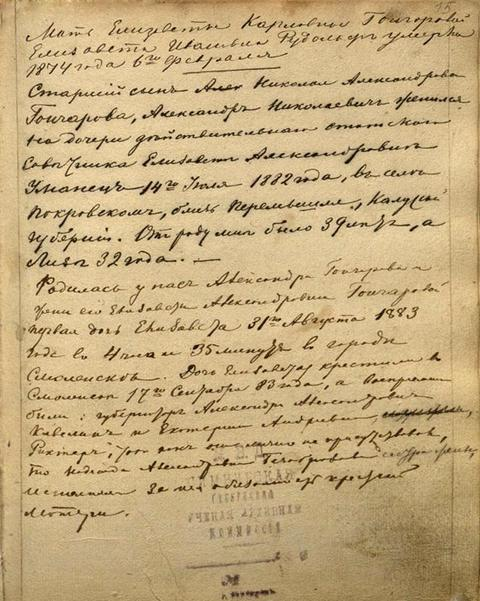 15
Мать Елизаветы Карловны Гончаровой
Елизавета Ивановна Рудольфъ умерла
1874 года 6го Февраля
Старшій сынъ Николая Александровича
Гончарова, Александръ Николаевичъ женился
на дочери дѣйствительнаго статскаго
Совѣтника Елизаветѣ Александровнѣ
14го Іюля 1882 года, въ селѣ
Покровскомъ, близъ Перемышля, Калужской
губерніи. Отъ роду мнѣ было 39 лѣтъ, а
Лизѣ 32 года. —
Родилась у насъ Александра Гончарова и
жены его Елизаветы Александровны Гончаровой
первая дочь Елизавета 31го Августа 1883
года въ 4 часа и 35 минутъ въ городѣ
Смоленскѣ. Дочь Елизавету крестили въ
Смоленскѣ 17го Сентября 83 года, а
были: губернаторъ Александръ Александровичъ
Кавелинъ и Екатерина Андреевна
Рихтеръ,
то Надежда Александровна Гончарова
за нея обязанность крестной
матери.